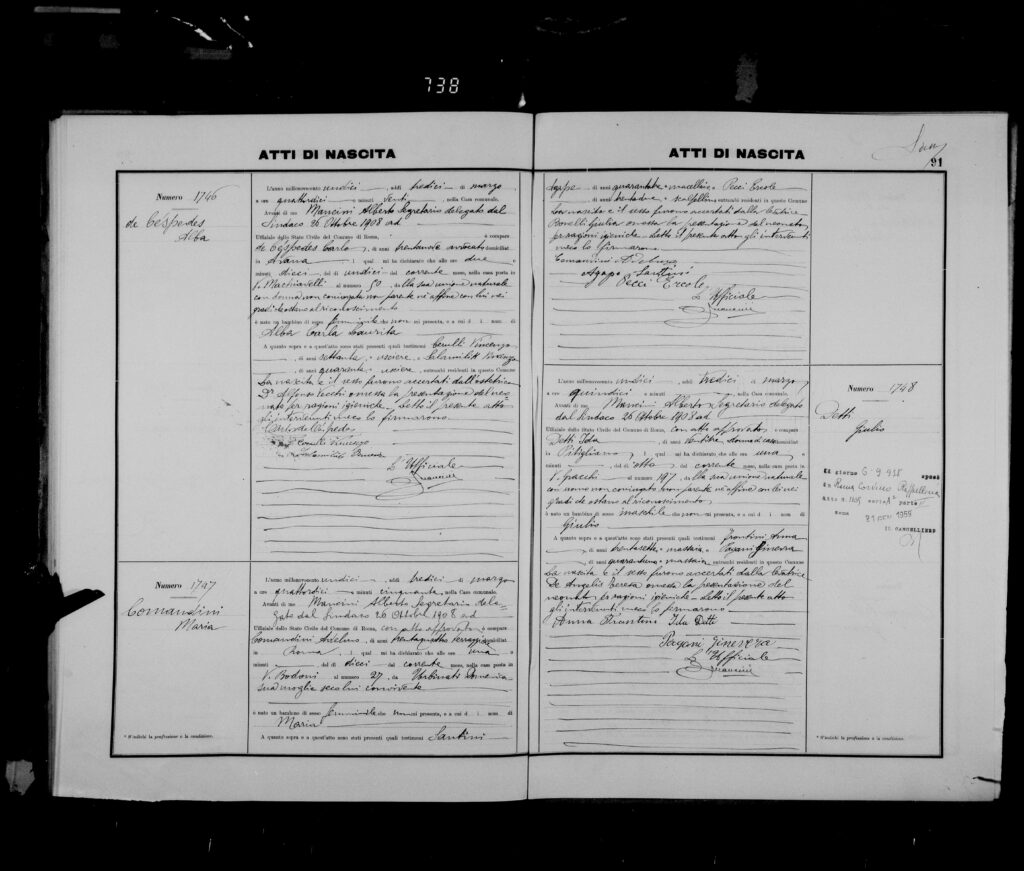 738
ATTI DI NASCITA
Numero 1746
de Céspedes
Alba
L'anno millenovecento undici, addì tredici di marzo
a ore quattordici e minuti venti, nella Casa comunale.
Avanti di me Mancini Alberto Segretario delegato dal
Sindaco 26 Ottobre 1908 ad
Uffiziale dello Stato Civile del Comune di Roma, è comparso
de Céspedes Carlo, di anni trentanove avvocato domiciliato
in Avana, i qual mi ha dichiarato che alle ore due e
minuti dieci, del dì undici del corrente mese, nella casa posta in
V. Machiavelli al numero 50, dalla sua unione naturale
con donna non coniugata non parente né affine con lui nei
gradi che ostano al riconoscimento
è nato un bambino di sesso femminile che non mi presenta, e a cui dà i nomi di
Alba Carla Laurita
A quanto sopra e a quest'atto sono stati presenti quali testimoni Cerulli Vincenzo
, di anni settanta, usciere,
, di anni quaranta, usciere, entrambi residenti in questo Comune
La nascita e il sesso furono accertati dall'ostetrico
Dr Alfonso Vecchi omessa la presentazione del neo
nato per ragioni igieniche. Letto il presente atto
gli intervenuti meco lo firmarono
Carlo de Céspedes
Cerulli Vincenzo
L'Uffiziale
Mancini
Numero 1747
Comandini
Maria
L'anno millenovecento undici, addì tredici di marzo
a ore quattordici e minuti cinquanta, nella Casa comunale.
Avanti di me Mancini Alberto Segretario dele-
gato dal Sindaco 26 Ottobre 1908 ad
Uffiziale dello Stato Civile del Comune di Roma, con atto approvato è comparso
Comandini Adelmo, di anni trentaquattro domiciliato
in Roma, i qual mi ha dichiarato che alle ore una e
minuti, del dì dieci del corrente mese, nella casa posta in
V. Bodoni al numero 27, da Urbinati Domenica
sua moglie seco lui convivente
è nato un bambino di sesso femminile che non mi presenta, e a cui dà i nomi di
Maria
A quanto sopra e a quest'atto sono stati presenti quali testimoni Santini
* S'indichi la professione o la condizione.
ATTI DI NASCITA
91
Agape, di anni quaranta, macellaio e Pecci Ercole
, di anni, scalpellino entrambi residenti in questo Comune
La nascita e il sesso furono accertati dalla levatrice
Giulia omessa la presentazione del neonato
per ragioni igieniche. Letto il presente atto gli intervenuti
meco lo firmarono
Comandini Adelmo
Agape Santini
Pecci Ercole
L'Uffiziale
Mancini
L'anno millenovecento undici, addì tredici di marzo
a ore quindici e minuti, nella Casa comunale.
Avanti di me Mancini Alberto Segretario delegato
dal Sindaco 26 Ottobre 1908 ad
Uffiziale dello Stato Civile del Comune di Roma, con atto approvato è comparso
Detti Ida, di anni ventitre, donna di casa domiciliat
in Pitigliano, i qual mi ha dichiarato che alle ore una e
minuti, del dì otto del corrente mese, nella casa posta in
V. Gracchi al numero 197, dalla sua unione naturale
con uomo non coniugato non parente né affine con lei nei
gradi che ostano al riconoscimento
è nato un bambino di sesso maschile che non mi presenta, e a cui dà i nomi di
Giulio
A quanto sopra e a quest'atto sono stati presenti quali testimoni Anna
, di anni trentasette, massaia e Pagani Ginevra
, di anni, massaia, entrambi residenti in questo Comune
La nascita e il sesso furono accertati dalla levatrice
De Angelis Teresa omessa la presentazione del
neonato per ragioni igieniche. Letto il presente atto
gli intervenuti meco lo firmarono
Anna Ida Detti
Pagani Ginevra
L'Uffiziale
Mancini
Numero 1748
Detti
Giulio
Il giorno 6-9-938 sposò
in Roma
Atto n. parte
Roma 1955
IL CANCELLIERE
* S'indichi la professione o la condizione.